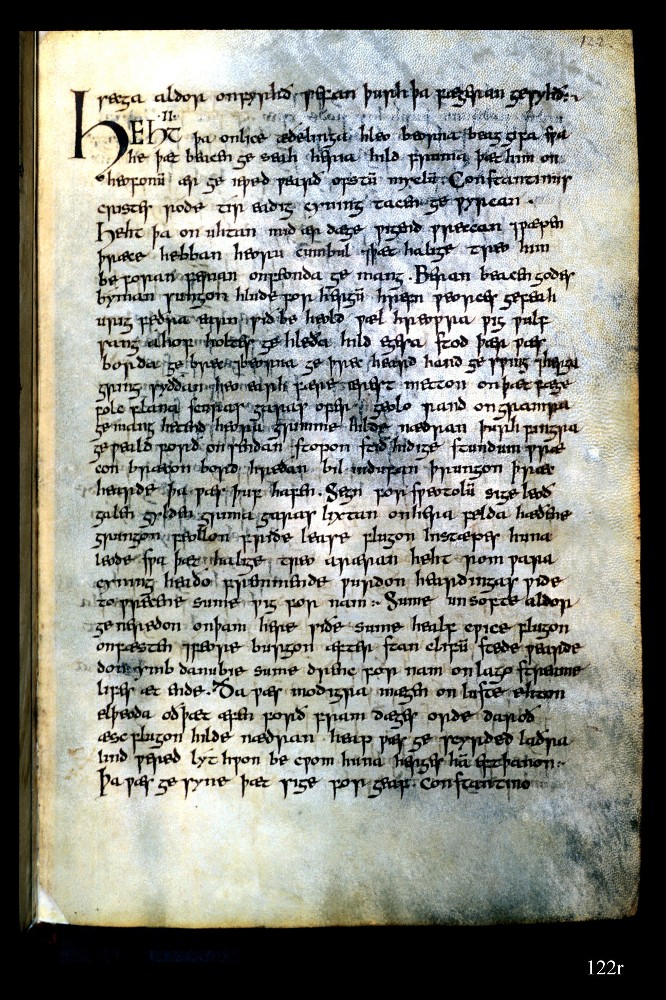 secga aldor onfyrhð sefan þurh þa fægeran gesyhð:
·II·
HEHT þa onlice æðelinga hleo beorna beag gifa swa
he þæt beacen ge seah heria hild fruma þæt him on
heofonū ær ge iewed wearð ofstū myclū. Constantinus
cristes rode tir eadig cyning tacen ge wyrcan.
Heht þa on uhtan mid ær dæge wigend wreccan ⁊wæpen
þræce hebban heoru cumbul ⁊þæt halige treo him
be foran ferian onfeonda ge mang. Beran beacen godes
byman sungon hlude for hergū hrefn weorces gefeah
urig feðra earn sið be heold wæl hreowra wig wulf
sang ahof holtes ge hleða hild egesa stod þær wæs
borda ge brec ⁊beorna ge þrec heard hand ge swing ⁊herga
gring syððan heo earh fære ærest metton on þæt fæge
folc flana scuras garas ofer geolo rand on gramra
ge mang hetend heoru grimme hilde nædran þurh fingra
ge weald forð onsendan stopon stið hidige stundum wræ
con bræcon bord hreðan bil indufan þrungon þræc
hearde þa wæs þuf hafen. Segn for sweotolū sige leoð
galen gylden grima garas lixtan onhera felda hæðene
grungon feollon friðe lease flugon instæpes huna
leode swa þæt halige treo aræran heht rom wara
cyning heaðo fremmende wurdon heardingas wide
towrecene sume wig for nam:. Sume unsofte aldor
generedon onþam here siðe sume healf cwice flugon
onfæsten ⁊feore burgon æfter stan clifū stede wearde
don ymb danubie sume drenc for nam on lago streame
lifes æt ende. Ða wæs modigra mægen on luste ehton
elþeoda oð þæt æfen forð fram dæges orde daroð
æsc flugon hilde nædran heap wæs ge scyrded laðra
lind wered lyt hwon be cwom huna herges hā eft þanon:
Þa wæs ge syne þæt sige for geaf constantino
122r